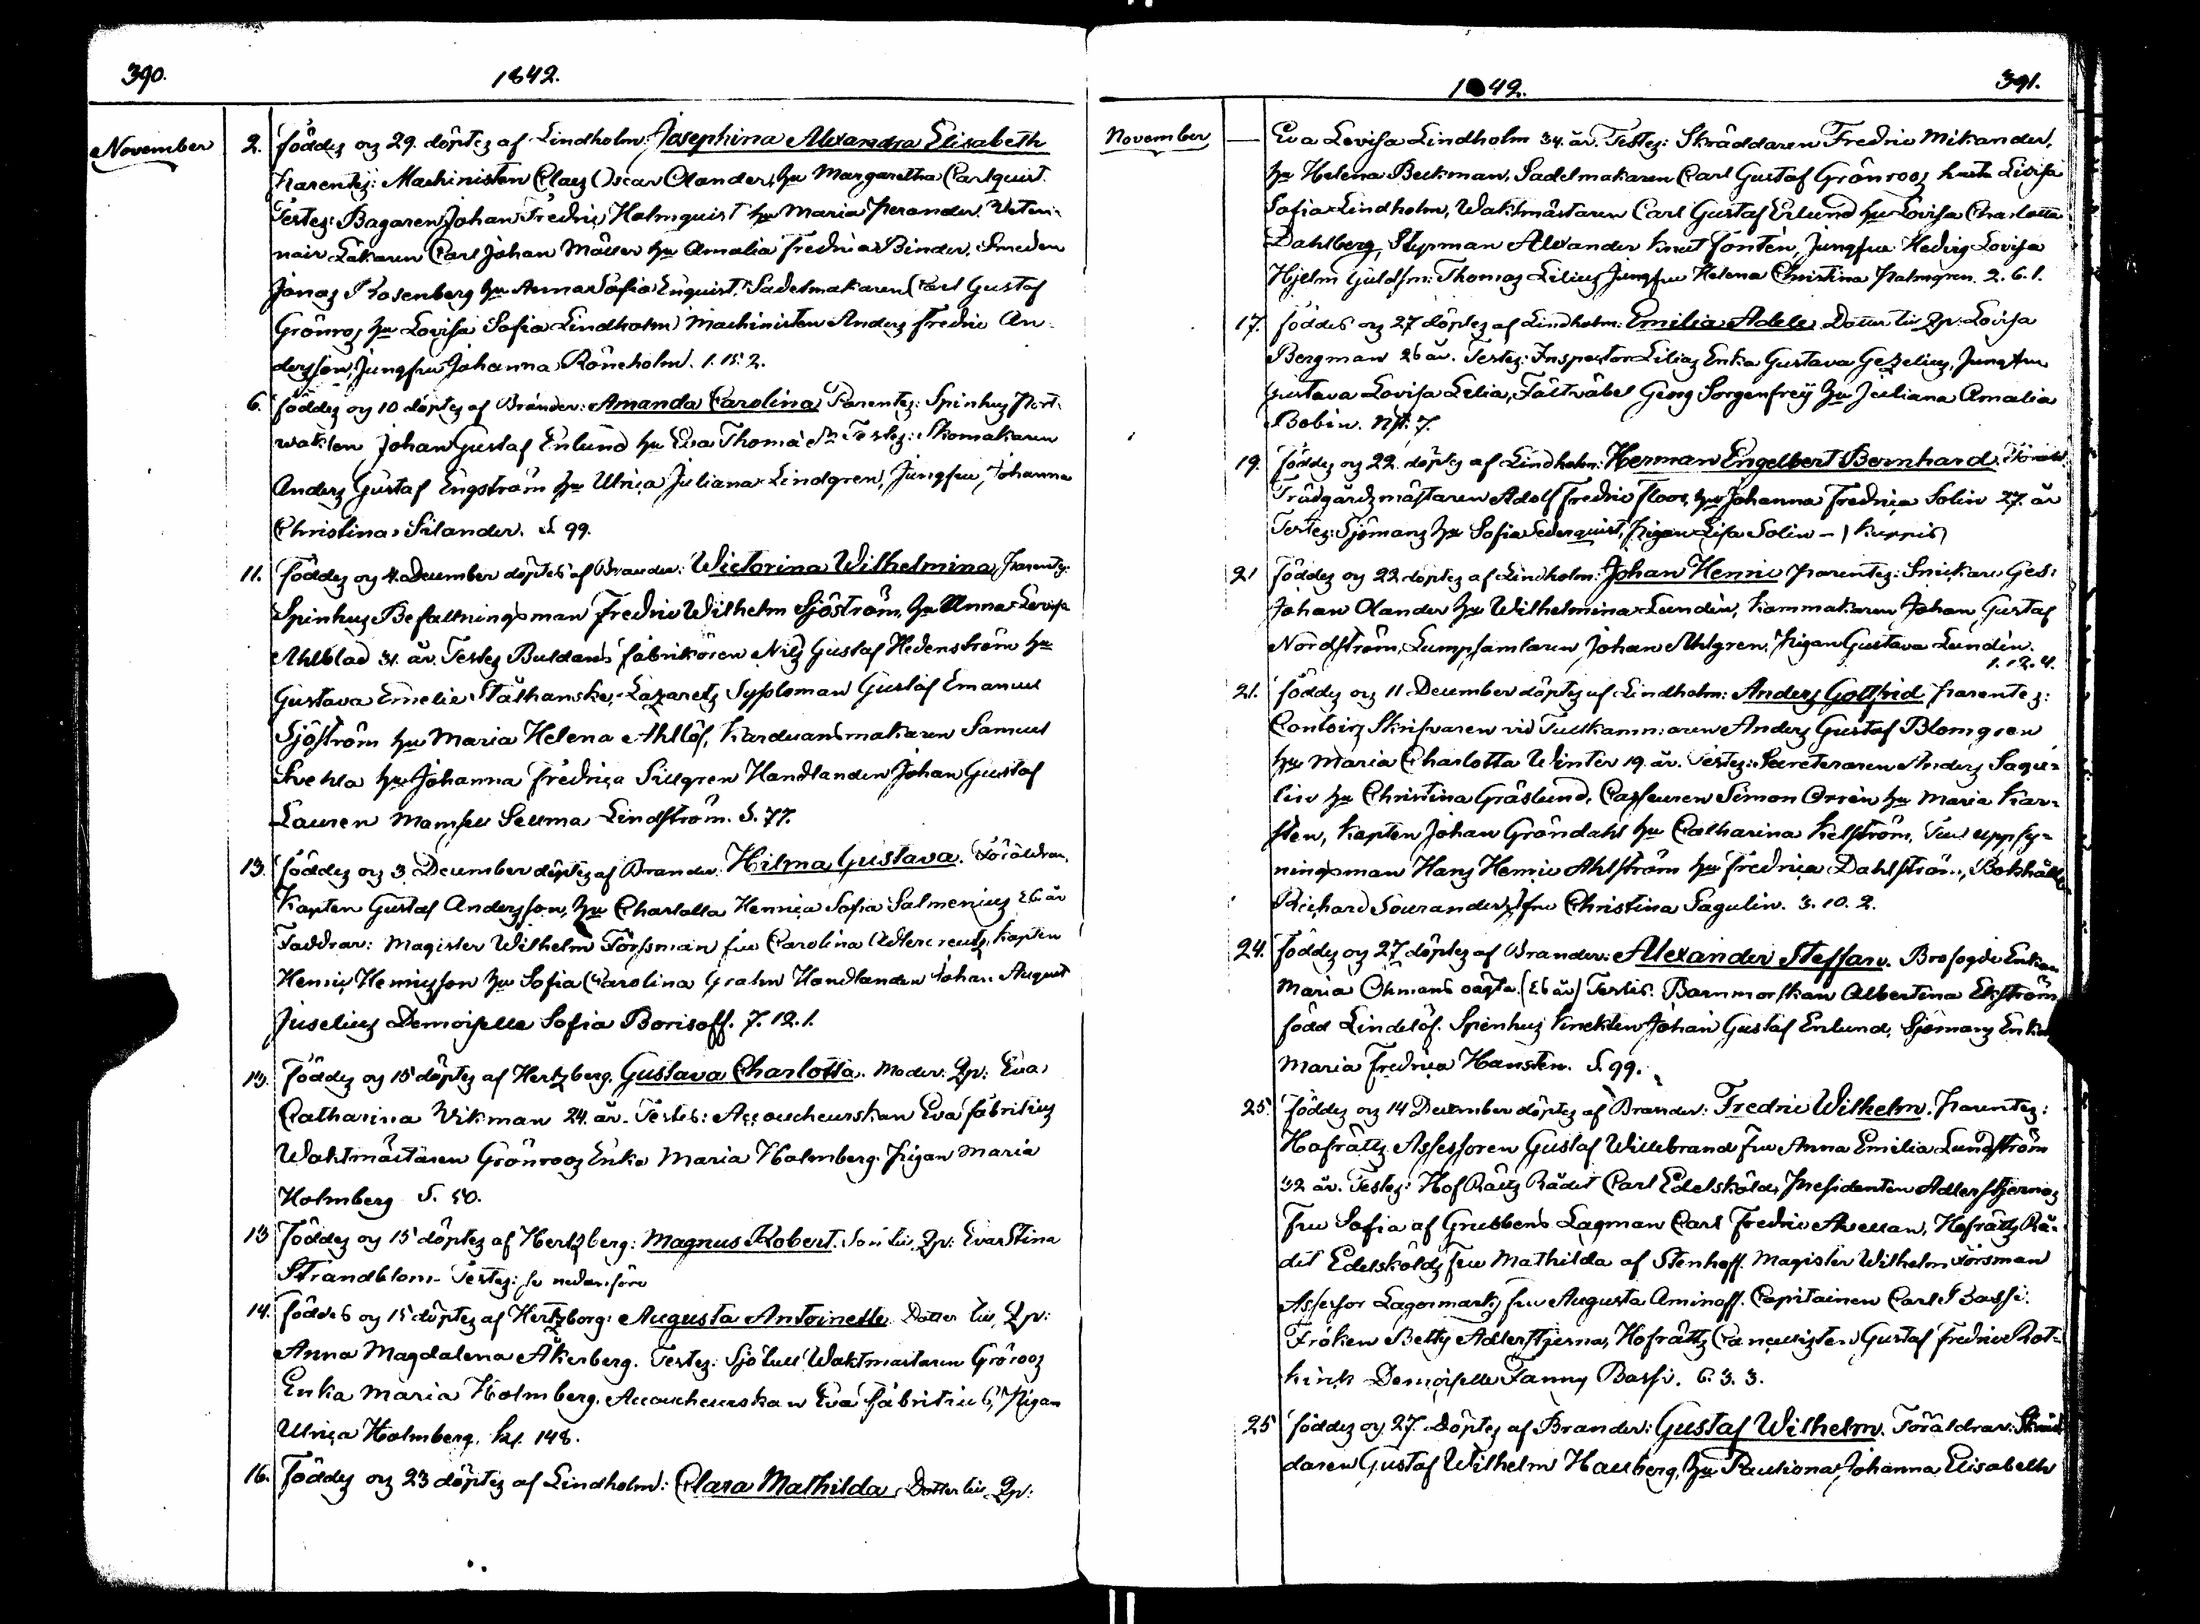 390. 1842.
November 2. föddes og 29. döptes af Lindholm: Josephina Alexandra Elisabeth
Parentes: Machinisten Claes Oscar Olander, hu Margaretha Carlquist.
Testes: Bagaren Johan Fredric Holmquist hu Maria Perander. Veteri-
nair Läkaren Carl Johan Möller hu Amalia Fredrica Binder, Smeden
Jonas Rosenberg hu Anna Sofia Enquist. Sadelmakaren Carl Gustaf
Grönros hu Lovisa Sofia Lindholm Machinisten Anders Fredric An-
dersson, Jungfru Johanna Röneholm. 1. 15. 2.
6. föddes og 10 döptes af Brander: Amanda Carolina Parentes: Spinhus Port-
wakten Johan Gustaf Enlund hu Eva Thomä Dr Testes: Skomakaren
Anders Gustaf Engström hu Ulrica Juliana Lindgren, Jungfru Johanna
Christina Silander. S. 99.
11. föddes og 4. December döptes af Brander: Wictorina Wilhelmina, Parentes:
Spinhus Befallningsman Fredric Wilhelm Sjöström, hu Anna Lovisa
Ahlblad 31. år. Testes Buldans fabrikören Nils Gustaf Hedenström hu
Gustava Emelie Stålhanske, Lazarets Sysloman Gustaf Emanuel
Sjöström hu Maria Helena Ahllöf, Karduansmakaren Samuel
Svehla hu Johanna Fredrica Sillgren Handlanden Johan Gustaf
Lauren Mamsell Selma Lindström. S. 77.
13. föddes og 3 December döptes af Brander. Hilma Gustava. Föräldrar,
Kapten Gustaf Andersson, hu Charlotta Henrica Sofia Salmenius 26 år
Faddrar: Magister Wilhelm Forssman fru Carolina Adlercreutz, Kapten
Henric Henricsson hu Sofia Carolina Grahn Handlanden Johan August
Juselius Demoiselle Sofia Borisoff. 7. 12. 1.
13. föddes og 15 döptes af Hertzberg. Gustava Charlotta. Moder: Qp: Eva
Catharina Wikman 24. år. Testes: Accoucheurskan Eva Fabritius
Waktmästaren Grönroos Enka Maria Holmberg. Pigan Maria
Holmberg S. 50.
13 föddes og 15 döptes af Hertzberg: Magnus Robert. Son till Qp: Eva Stina
Strandblom. Testes: se nedanföre
14. föddes og 15 döptes af Hertzberg: Augusta Antoinette. Dotter till Qp:
Anna Magdalena Åkerberg. Testes: Sjötull Waktmästaren Grönroos
Enka Maria Holmberg. Accoucheurskan Eva Fabritius, Pigan
Ulrica Holmberg, Kl. 148.
16. föddes og 23 döptes af Lindholm: Clara Mathilda, Dotter till Qp:
1842. 391.
November — Eva Lovisa Lindholm 34. år. Testes: Skräddaren Fredric Mikander,
hu Helena Beckman, Sadelmakaren Carl Gustaf Grönroos hustru Lovisa
Sofia Lindholm, Waktmästaren Carl Gustaf Erlund hu Lovisa Charlotta
Dahlberg, Styrman Alexander Knut Fontén, Jungfru Hedvig Lovisa
Hjelm Guldsm: Thomas Lilius Jungfru Helena Christina Palmgren. 2. 6. 1.
17. föddes og 27 döptes af Lindholm: Emilia Adele, Dotter till Qp: Lovisa
Bergman 26 år. Testes: Inspector Lilias Enka Gustava Gezelius, Jungfru
Gustava Lovisa Lilia, Fältväbel Georg Sorgenfrey hu Juliana Amalia
Bobin. 7.
19. föddes og 22. döptes af Lindholm: Herman Engelbert Bernhard.
Trädgårdsmästaren Adolf Fredric Floor, hu Johanna Fredrica Solin 27. år
Testes: Sjömans hu Sofia Sederquist, Pigan Lisa Solin — (Kuppis)
21 föddes og 22 döptes af Lindholm: Johan Henric Parentes: Snickare Ges:
Johan Olander hu Wilhelmina Lundén, Kammakaren Johan Gustaf
Nordström, Lumpsamlaren Johan Ahlgren, Pigan Gustava Lundén.
1. 12. 4.
21. föddes og 11 December döptes af Lindholm: Anders Gottfrid Parentes:
Contoirs Skrifvaren vid Tullkammaren Anders Gustaf Blomgren
hu Maria Charlotta Winter 19. år. Testes: Secreteraren Anders Sagu-
lin hu Christina Gräslund, Casseuren Simon Orrén hu Maria Kar-
sten, Kapten Johan Gröndahl hu Catharina Kelström, Tull uppsy-
ningsman Hans Henric Ahlström hu Fredrica Dahlström, Bokhålle
Richard Sourander, Jfru Christina Sagulin. 3. 10. 2.
24. föddes og 27 döptes af Brander: Alexander Steffan. Brofogde Enkan
Maria Öhmans oägta. (26 år) Testes. Barnmorskan Albertina Ekström
född Lindelöf. Spinhus Knekten Johan Gustaf Enlund, Sjömans Enka
Maria Fredrica Hansten. S. 99.
25. föddes og 14 December döptes af Brander: Fredric Wilhelm. Parentes:
Hofrätts Assessoren Gustaf Willebrand fru Anna Emilia Lundström
32 år. Testes: HofRätts Rådet Carl Edelsköld, Presidenten Adlerstjernas
fru Sofia af Grubbens Lagman Carl Fredric Avellan, Hofrätts Rå-
det Edelskölds fru Mathilda af Stenhoff. Magister Wilhelm Forsman
Assessor Lagermarks fru Augusta Aminoff. Capitainen Carl J Bassi.
Fröken Betty Adlerstjerna, Hofrätts Cancellisten Gustaf Fredric Rot-
kirch Demoiselle Fanny Bassi. 6. 3. 3.
25 föddes og 27. Döptes af Brander: Gustaf Wilhelm. Föräldrar: Skräd
daren Gustaf Wilhelm Hallberg, hu Pauliona Johanna Elisabeth